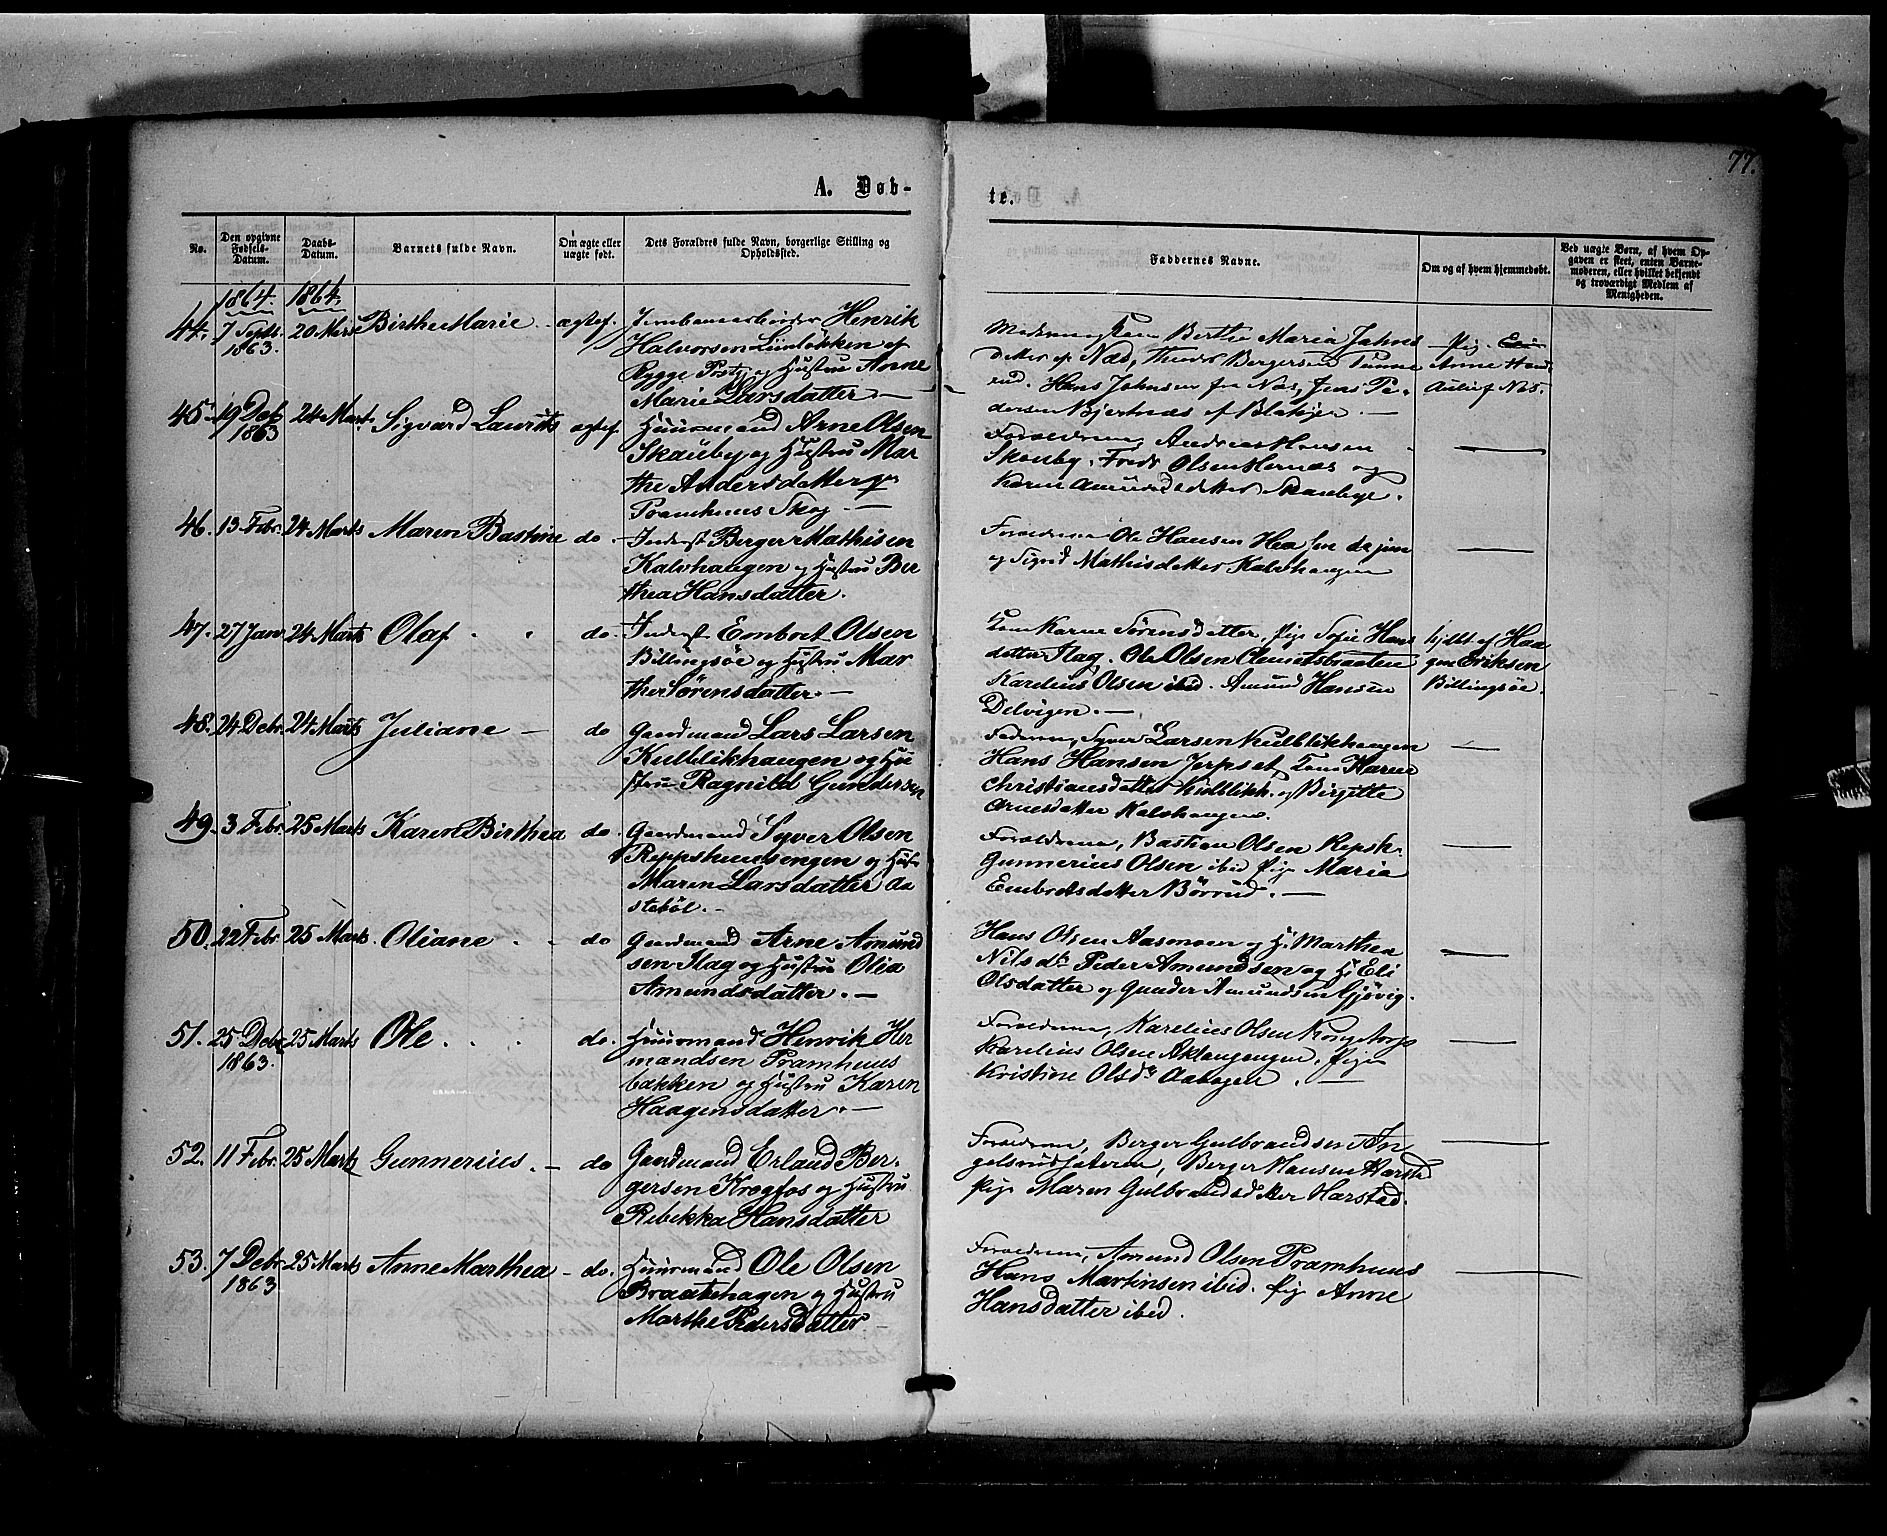 77.
A. Døb-
te.
No.
Den opgivne Fødsels-Datum.
Daabs-Datum.
Barnets fulde Navn.
Om ægte eller uægte født.
Dets Forældres fulde Navn, borgerlige Stilling og Opholdssted.
Faddernes Navne.
Om og af hvem hjemmedøbt.
Ved uægte Børn, af hvem Op-
gaven er skeet, enten Barne-
moderen, eller hvilket bekjendt
og troværdigt Medlem af
Menigheden.
1864. 1864.
44. 7 Septb. 1863. 20 Marts Birthe Marie ægtef. Jernbanearbeider Henrik
Halvorsen af
Rygge Prstgj og Hustru Anne
Marie Larsdatter
Berthe Maria Johns
datter af Næs, Bergersen
Hans Johnsen fra Næs, Jens Pe-
dersen af Blakjer.
Pig
Anne
af Næs.
45. 19 1863 24 Marts Sigvard Laurits ægtef. Huusmand Arne Olsen
Skauby og Hustru Mar
the Andersdatter
Pramhuus Skog.
Forældrene, Andreas Hansen
Skauby. Fredr Olsen Hernæs og
Karen Amundsdatter Skaubye.
46. 13 Febr. 24 Marts Maren Bastine do. Inderst Berger Mathisen
Kalvhaugen og Hustru Ber
thea Hansdatter.
Forældrene Ole Hansen
og Sigrid Mathisdatter Kalvhaugen
47. 27 Jan 24 Marts Olaf do. Inderst Embret Olsen
Billingsøe og Hustru Mar
the Sørensdatter.
Kone Karen Sørensdatter, Pige Sofie Hans
datter Slag. Ole Olsen Clemetsbraaten
Karelius Olsen ibid. Amund Hansen
Delvigen.
hjdbt. af Haa
gen Eriksen
Billingsøe.
48. 24 Debr. 24 Marts Juliane do Gaardmand Lars Larsen
Kulblikhaugen og Hu
stru Ragnild Gundersen
Faderen, Syver Larsen Kulblikhaugen
Hans Hansen Jerpset, Kone Karen
Christiansdatter Kulblikh. og Birgitte
Arnesdatter Kalvhaugen.
49. 3 Febr. 25 Marts Karen Birthea do. Gaardmand Syver Olsen
Reppshuusengen og Hust.
Maren Larsdatter Aa
stebøl.
Forældrene, Bastian Olsen Repsh.
Gunnerius Olsen ibid Pige Maria
Embretsdatter Børrud.
50. 22 Febr. 25 Marts. Oliane do Gaardmand Arne Amund
sen Slag og Hustru Olea
Amundsdatter.
Hans Olsen Aasmoen og H. Marthea
Nilsdt. Peder Amundsen og H. Eli
Olsdatter og Gunder Amundsen Gjøvig.
51. 25 Debr 1863. 25 Marts Ole do. Huusmand Henrik Her
mandsen Pramhuus
bakken og Hustru Karen
Haagensdatter.
Forældrene, Karelius Olsen Kongstorp
Karelius Olsen Aklangengen. Pige
Kristine Olsdr Aabogen.
52. 11 Febr. 25 Marts Gunnerius. do Gaardmand Erland Ber-
gersen Krogfos og Hustru
Rebekka Hansdatter
Forældrene, Berger Gulbrandsen An
gelsrudsæteren, Berger Hansen Harstad
Pige Maren Gulbrandsdatter Harstad.
53. 7 Debr. 1863 25 Marts Anne Marthea do. Huusmand Ole Olsen
Braatehagen og Hustru
Marthe Pedersdatter
Forældrene, Amund Olsen Pramhuus
Hans Martinsen ibid. Pige Anne
Hansdatter ibid.